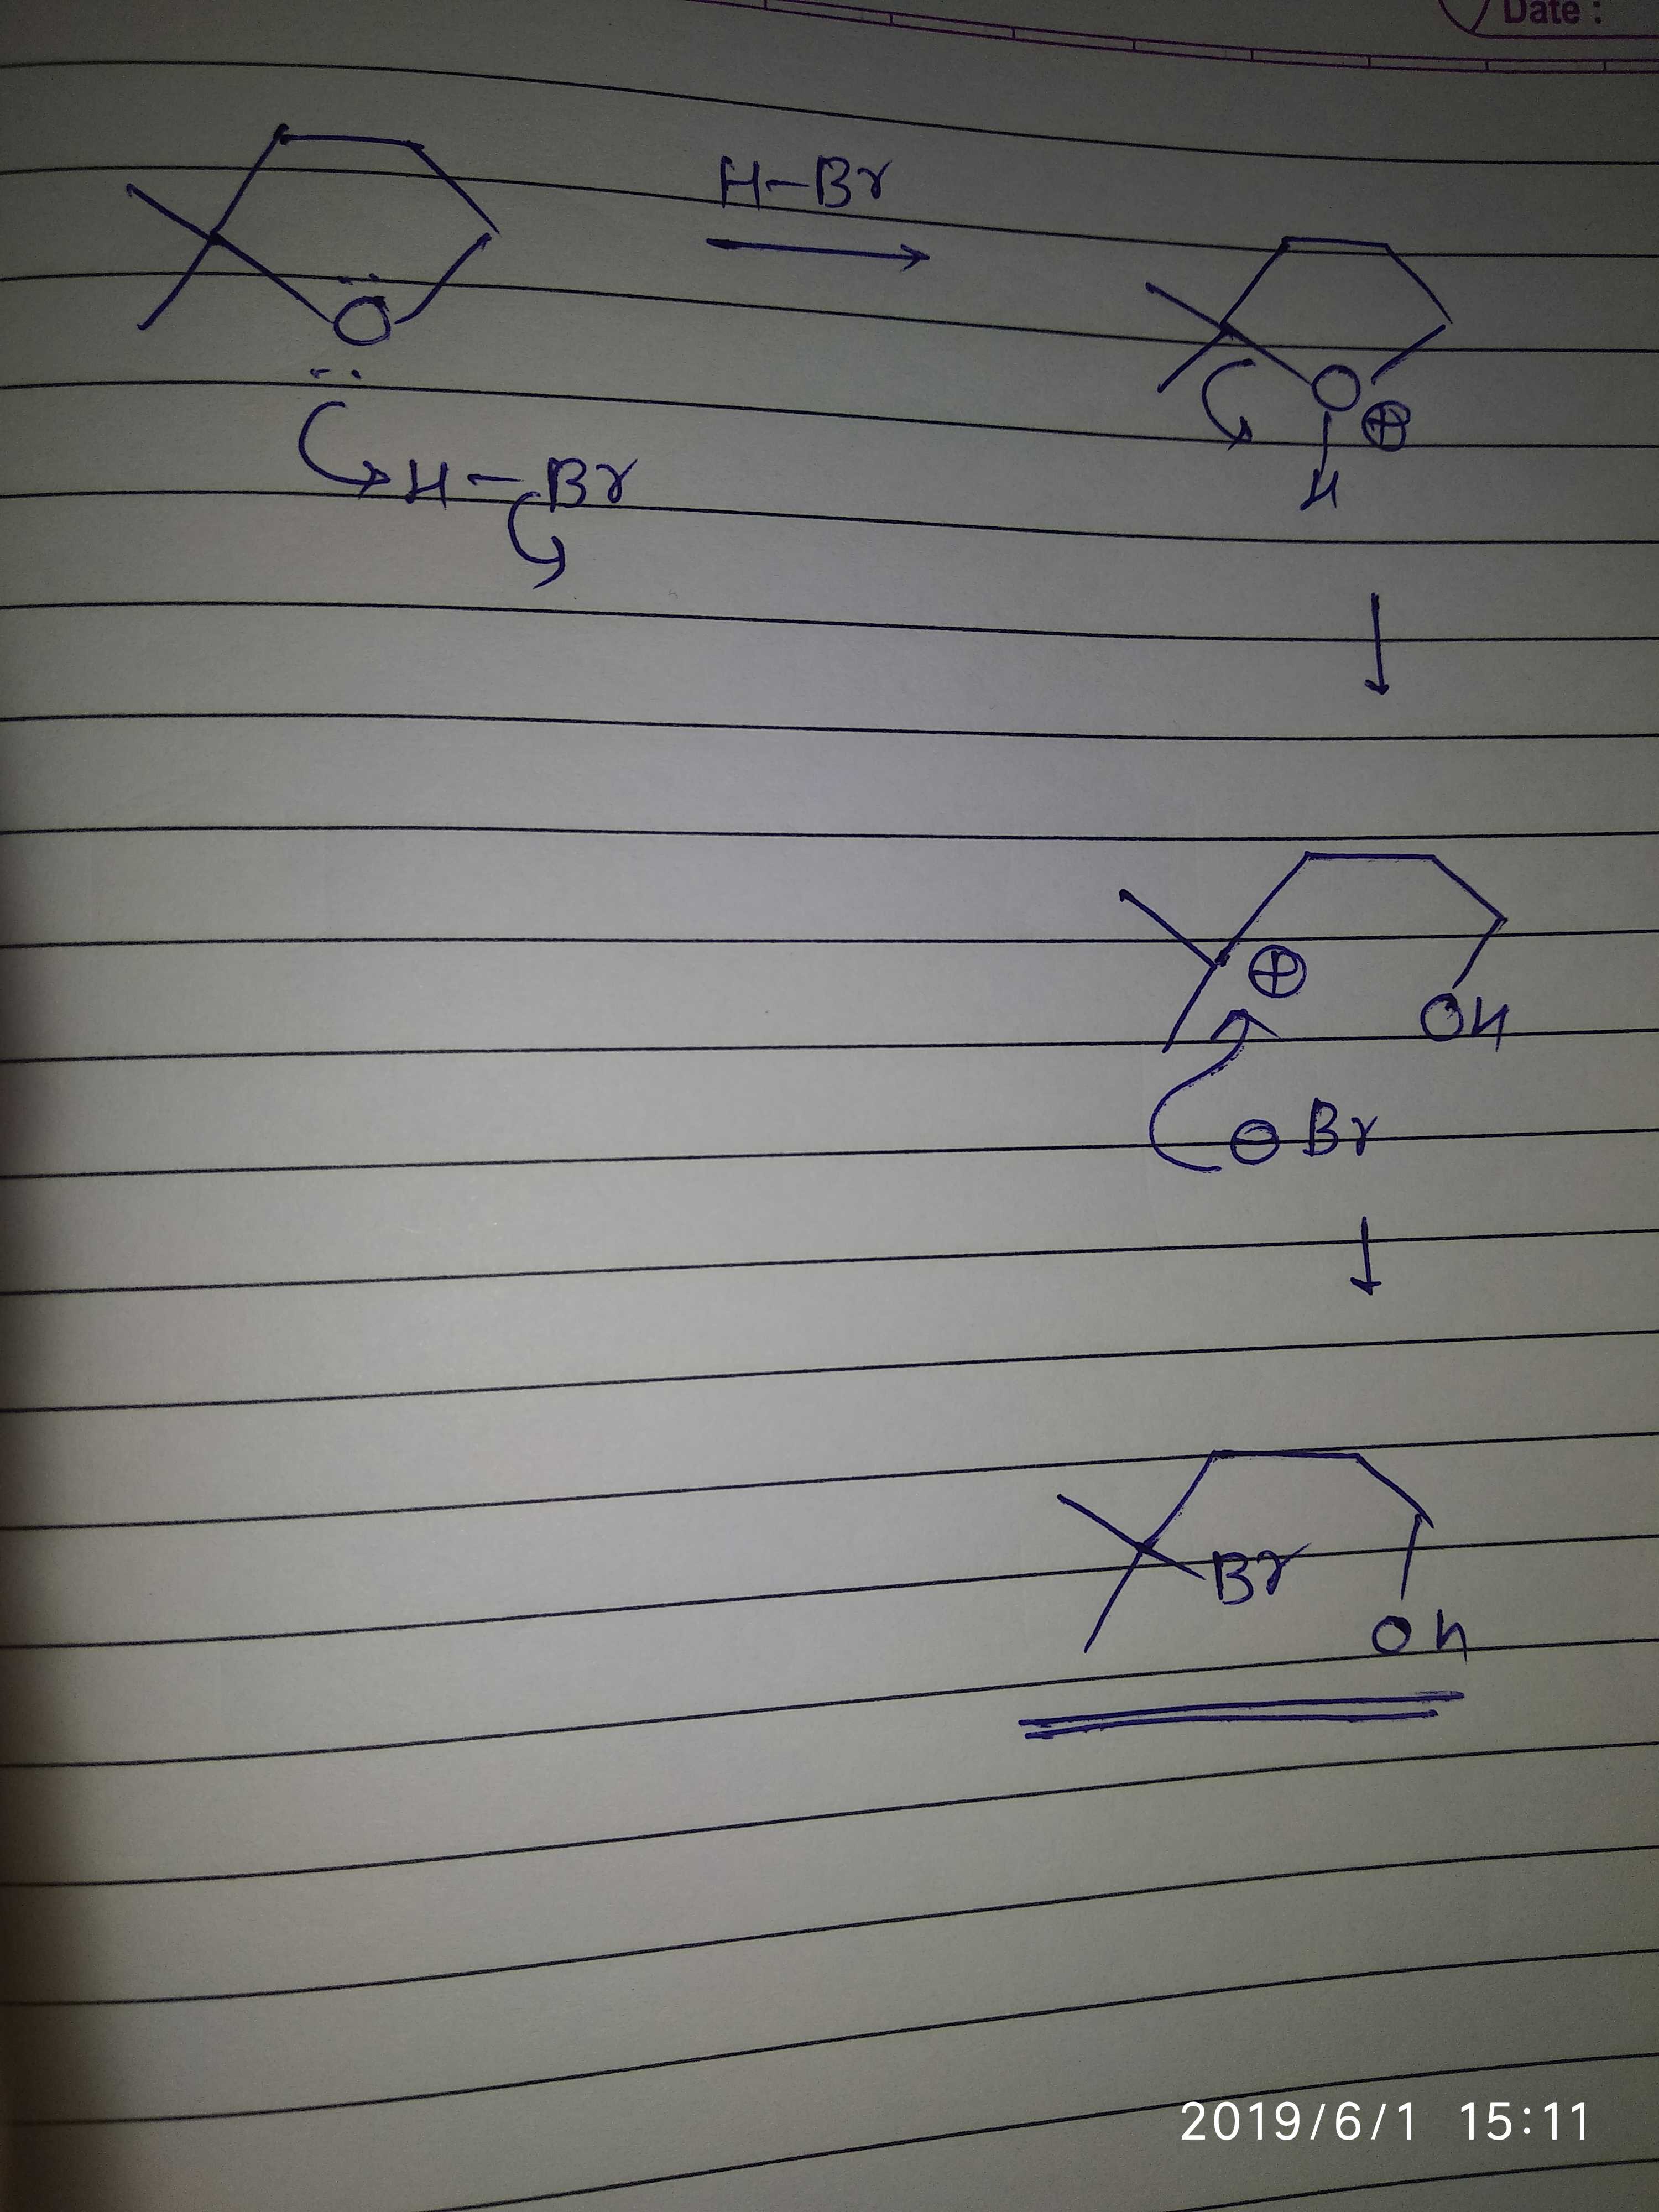 Date :
H-Br
O
H-Br
O ⊕
H
⊕
OH
⊖ Br
Br
OH
2019/6/1 15:11